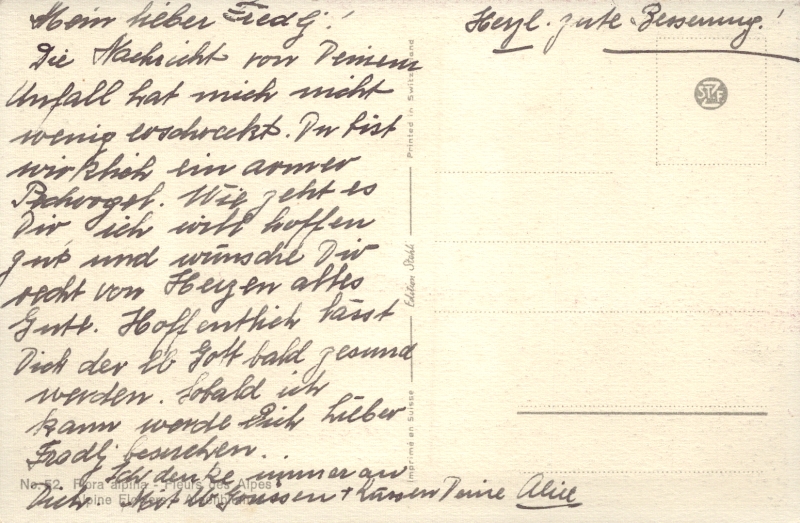 Mein lieber Fredj!
Die Nachricht von Deinem
Unfall hat mich nicht
wenig erschreckt. Du bist
wirklich ein armer
Pechvogel. Wie geht es
Dir, ich will hoffen
gut und wünsche Dir
recht von Herzen alles
Gute. Hoffentlich lässt
Dich der lb Gott bald gesund
werden. Sobald ich
kann werde Dich lieber
Fredj besuchen..
Ich denke immer an
Dich. Mit lb Grüssen + Küssen Deine Alice
Herzl. gute Besserung!
No. 52. Flora alpina - Fleurs des Alpes
Alpine Flowers
Imprimé en Suisse
Edition Stehli
Printed in Switzerland